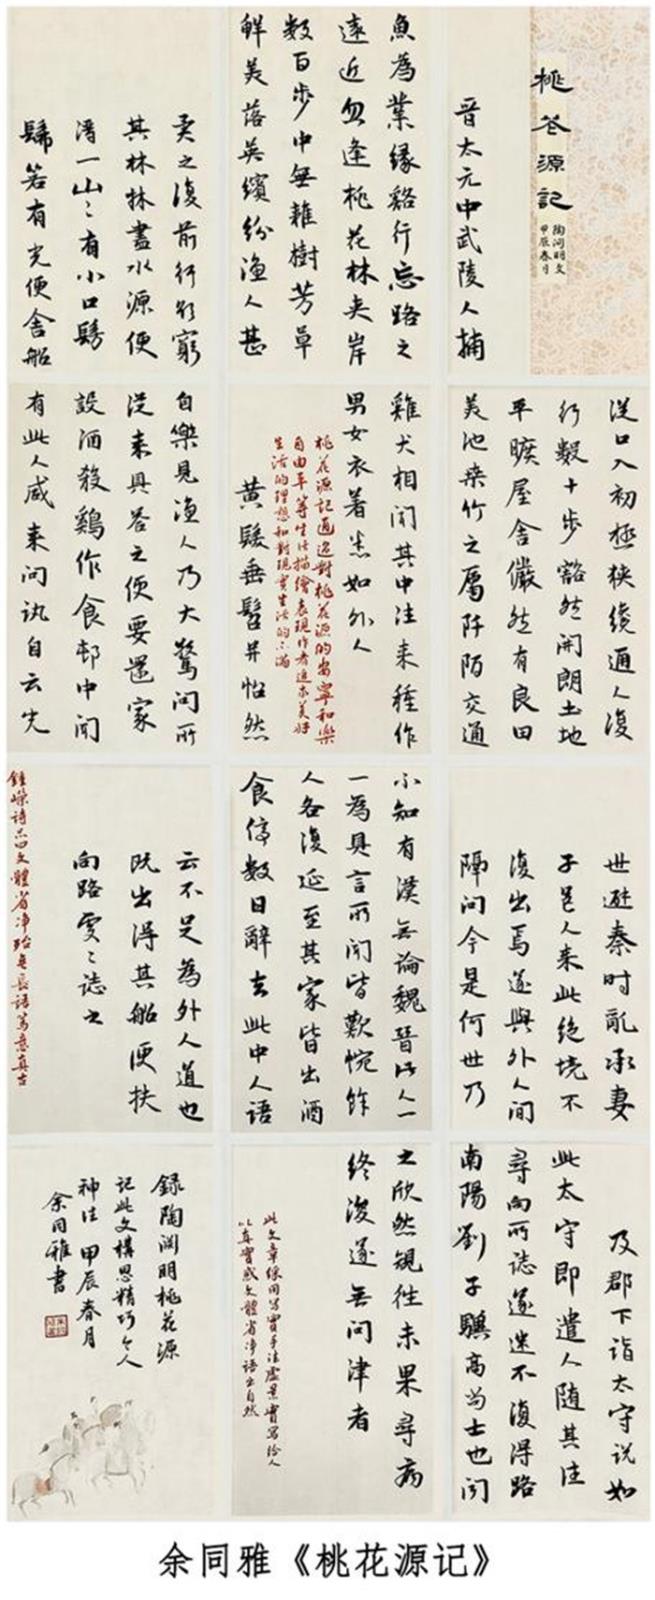 桃花源記
陶渊明文
甲辰春月
晋太元中武陵人捕
魚為業缘谿行忘路之
遠近忽逢桃花林夹岸
数百步中無雜樹芳草
鲜美落英缤纷渔人甚
异之復前行欲窮
其林林盡水源便
得一山々有小口髣
髴若有光便舍船
從口入初極狭纔通人復
行數十步豁然開朗土地
平曠屋舍儼然有良田
美池桑竹之屬阡陌交通
雞犬相聞其中往来種作
男女衣着悉如外人
桃花源記通过對桃花源的安寧和樂
自由平等生活描繪表現作者追求美好
生活的理想和對現實生活的不滿
黄髮垂髫并怡然
自樂見渔人乃大驚问所
從来具答之便要還家
設酒殺鷄作食邨中聞
有此人咸来问讯自云先
世避秦时亂率妻
子邑人来此绝境不
復出焉遂與外人间
隔问今是何世乃
不知有漢無論魏晋此人一
一為具言所聞皆歎惋餘
人各復延至其家皆出酒
食停数日辭去此中人語
云不足為外人道也
既出得其船便扶
向路處々誌之
鍾嶸詩品曰文體省净殆無長語篤意真古
及郡下詣太守说如
此太守即遣人随其往
尋向所誌遂迷不復得路
南陽劉子驥高尚士也聞
之欣然規往未果尋病
终後遂無问津者
此文章採用寫實手法虛景實寫给人
以真實感文體省净語出自然
録陶渊明桃花源
記此文構思精巧令人
神往 甲辰春月
余同雅書
余同雅《桃花源记》